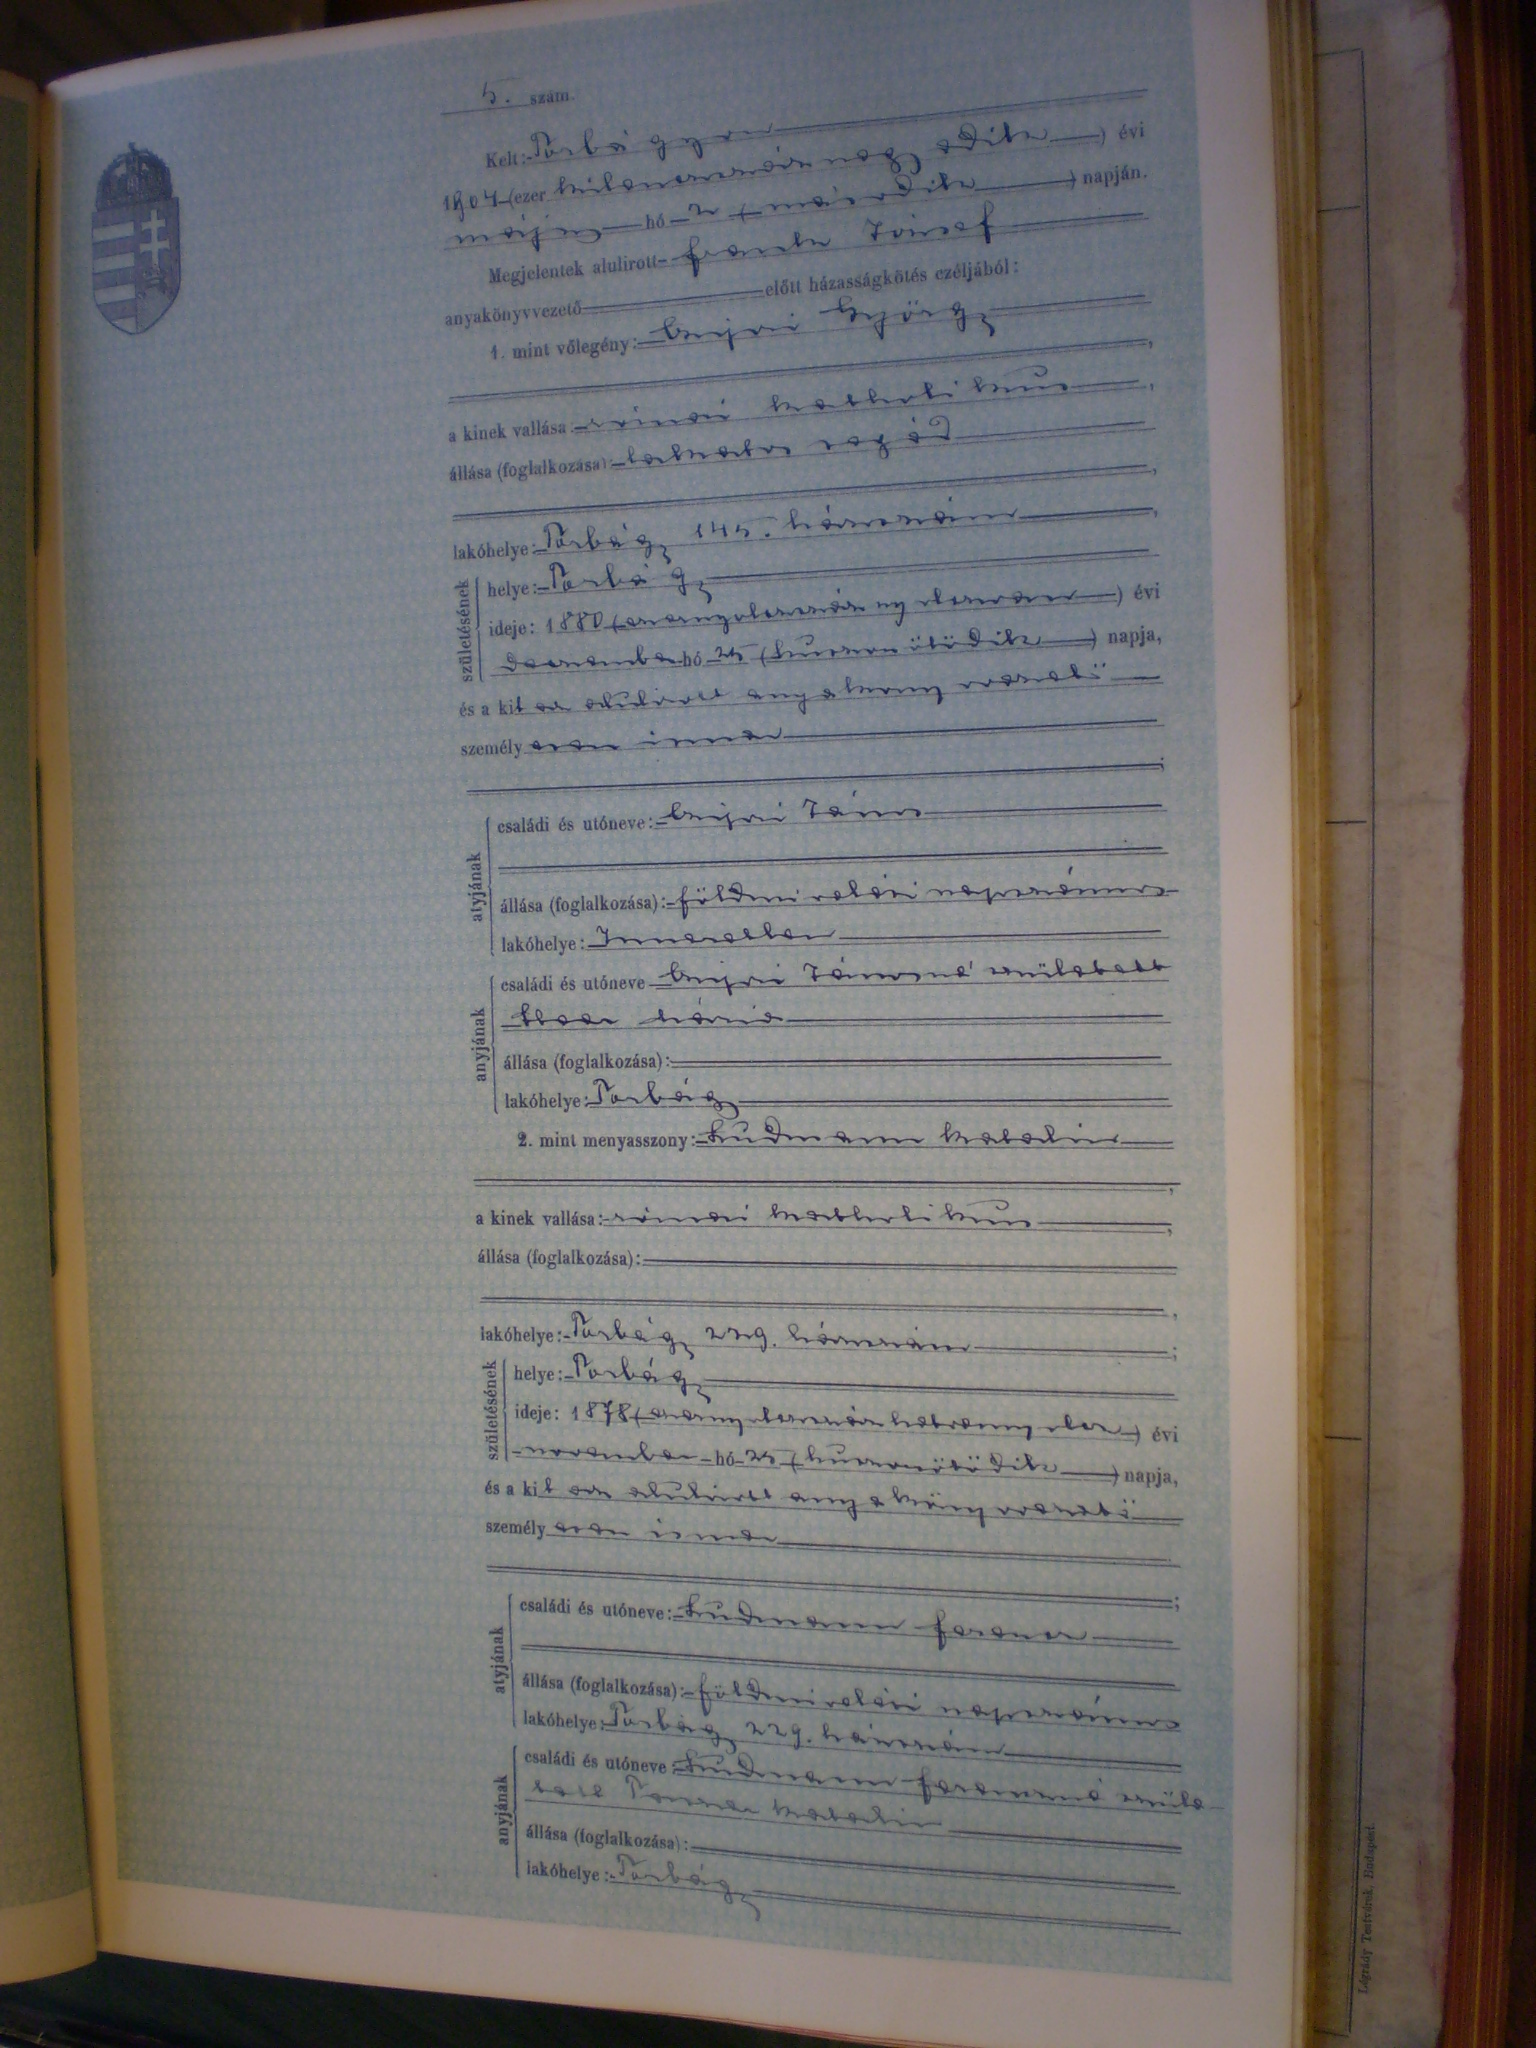 5. szám.
Kelt: Torbágyon
1904 (ezer kilenczszáz negyedik) évi
május hó 2 (második) napján.
Megjelentek alulirott Franck József
anyakönyvvezető előtt házasságkötés czéljából:
1. mint vőlegény: György
a kinek vallása: római katholikus
állása (foglalkozása): lakatos segéd
lakóhelye: Torbágy 145. házszám
születésének
helye: Torbágy
ideje: 1880 (ezernyolczszáznyolczvan) évi
deczember hó 25 (huszonötödik) napja,
és a kit az alulirott anyakönyvvezető
személyesen ismer
atyjának
családi és utóneve: János
állása (foglalkozása): földmivelési napszámos
lakóhelye: Ismeretlen
anyjának
családi és utóneve Jánosné született
Mária
állása (foglalkozása):
lakóhelye: Torbágy
2. mint menyasszony: Ludmann Katalin
a kinek vallása: római katholikus
állása (foglalkozása):
lakóhelye: Torbágy 229. házszám
születésének
helye: Torbágy
ideje: 1878 (ezernyolczszázhetvennyolcz) évi
november hó 25 (huszonötödik) napja,
és a kit az alulirott anyakönyvvezető
személyesen ismer
atyjának
családi és utóneve: Ludmann Ferencz
állása (foglalkozása): földmivelési napszámos
lakóhelye: Torbágy 229. házszám
anyjának
családi és utóneve: Ludmann Ferenczné szüle-
tett Katalin
állása (foglalkozása):
lakóhelye: Torbágy
Légrády Testvérek, Budapest